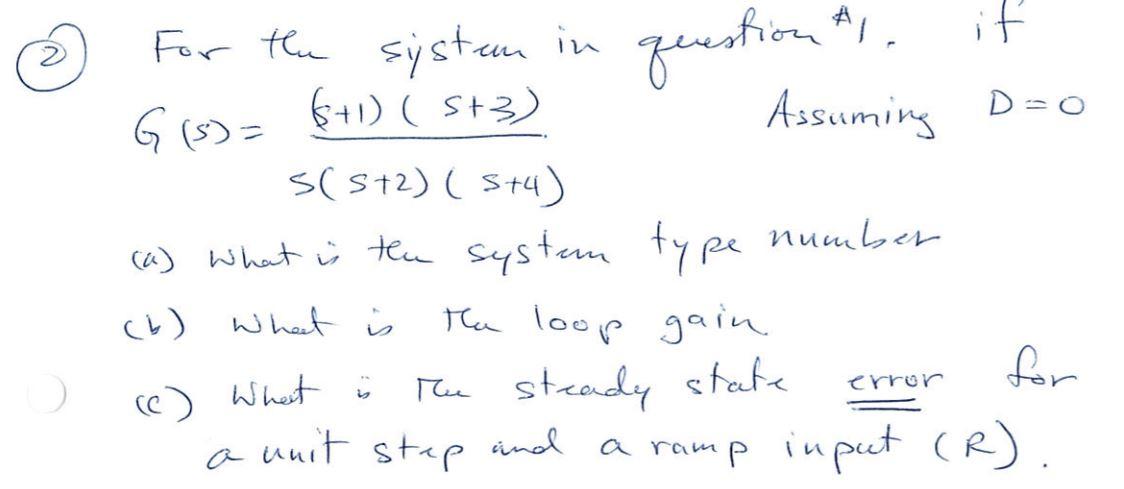 ② For the system in question #1. if
G(s) = (s+1)(s+3) Assuming D=0
s(s+2)(s+4)
(a) What is the system type number
(b) What is the loop gain
(c) What is the steady state error for
a unit step and a ramp input (R).